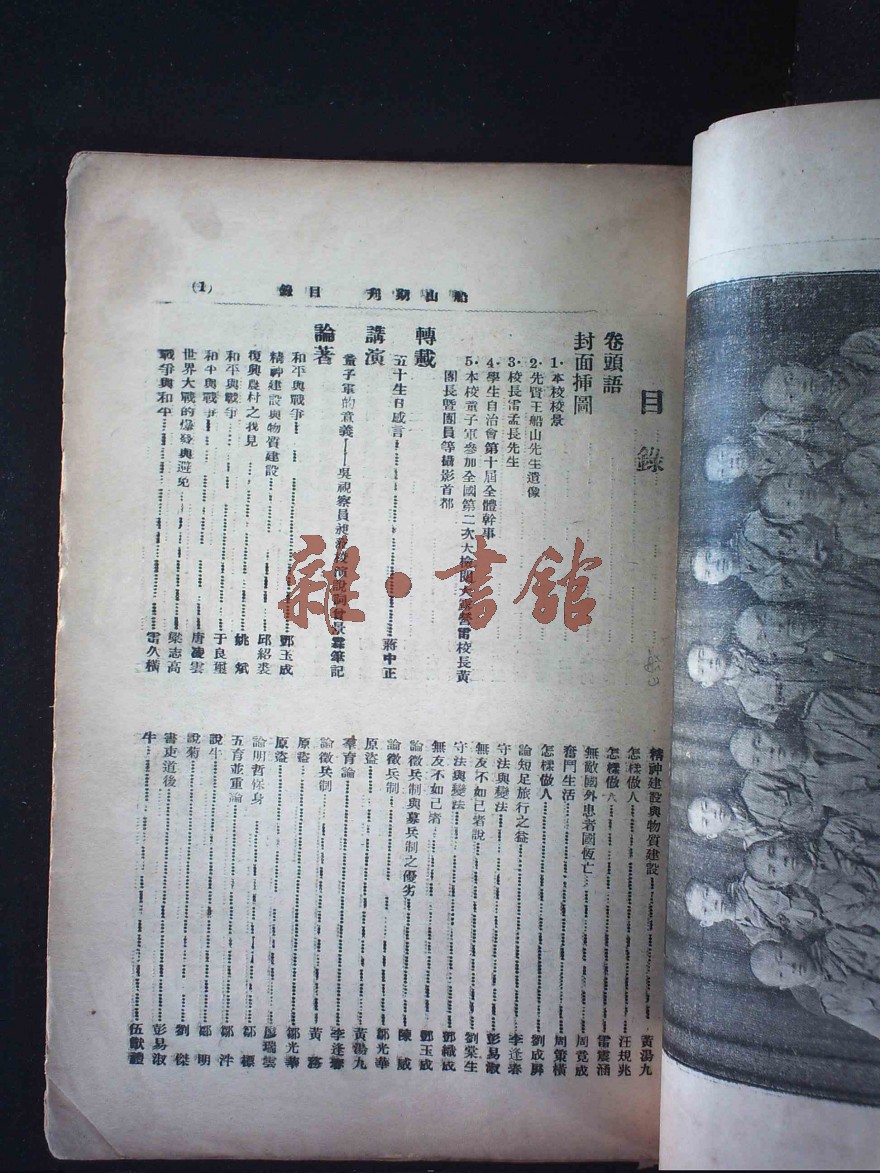 船山期刊 目錄 (1)
目錄
卷頭語
封面插圖
1.本校校景
2.先賢王船山先生遺像
3.校長雷孟長先生
4.學生自治會第十屆全體幹事
5.本校童子軍參加全國第二次大檢閱大露營雷校長黃
團長暨團員等攝影首都
轉載
五十生日感言 蔣中正
講演
童子軍的意義——吳視察員 筆記
論著
和平與戰爭 鄧玉成
精神建設與物質建設 邱紹裘
復興農村之我見 姚斌
和平與戰爭 于良璵
和平與戰爭 唐凌雲
世界大戰的爆發與避免 梁志高
戰爭與和平 雷久橫
精神建設與物質建設 黃湯九
怎樣做人 汪規兆
怎樣做人 雷震涵
無敵國外患者國恆亡 周覺成
奮鬥生活 周策橫
怎樣做人 劉成屏
論短足旅行之益 李逢春
守法與變法 彭易淑
無友不如己者說 劉棠生
守法與變法 鄧織成
無友不如己者 鄧玉成
論徵兵制與募兵制之優劣 陳威
論徵兵制 鄒光華
原盜 黃湯九
羣育論 李逢春
論徵兵制 黃務
原盜 鄒光華
原盜 廖瑞雲
論明哲保身 鄒標
五育並重論 鄒泮
說牛 鄒明
說菊 劉傑
書吏道後 彭易淑
牛 伍獻體
雜·書館
船山